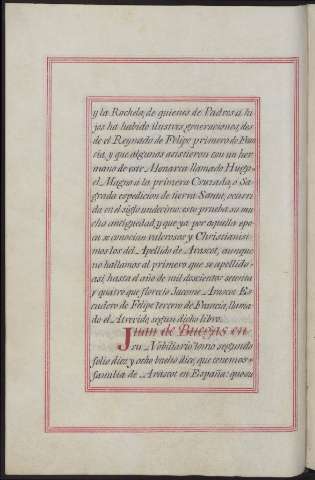 y la Rochela, de quienes de Padres à hi
jos ha habido ilustres generaciones, des
de el Reynado de Felipe primero de Fran
cia, y que algunos asistieron con un her
mano de este Monarca llamado Hugo
el Magno à la primera Cruzada, ò Sa
grada espedicion de tierra Santa, ocurri
da en el siglo undecimo: esto prueba su mu
cho antiguedad, y que ya por aquella epo
ca se conocian valerosos y Christianisi
mos los del Apellido de Arascot, aunque
no hallamos al primero que se apellidò
asi, hasta el año de mil doscientos setenta
y quatro que floreciò Jacome Arascot Es
cudero de Felipe tercero de Francia, llama
do el Atrevido, segun dicho libro.
Juan de Buegas en
su Nobiliario tomo segundo
folio diez y ocho buelto dice, que tenemos
familia de Arascot en España: que su